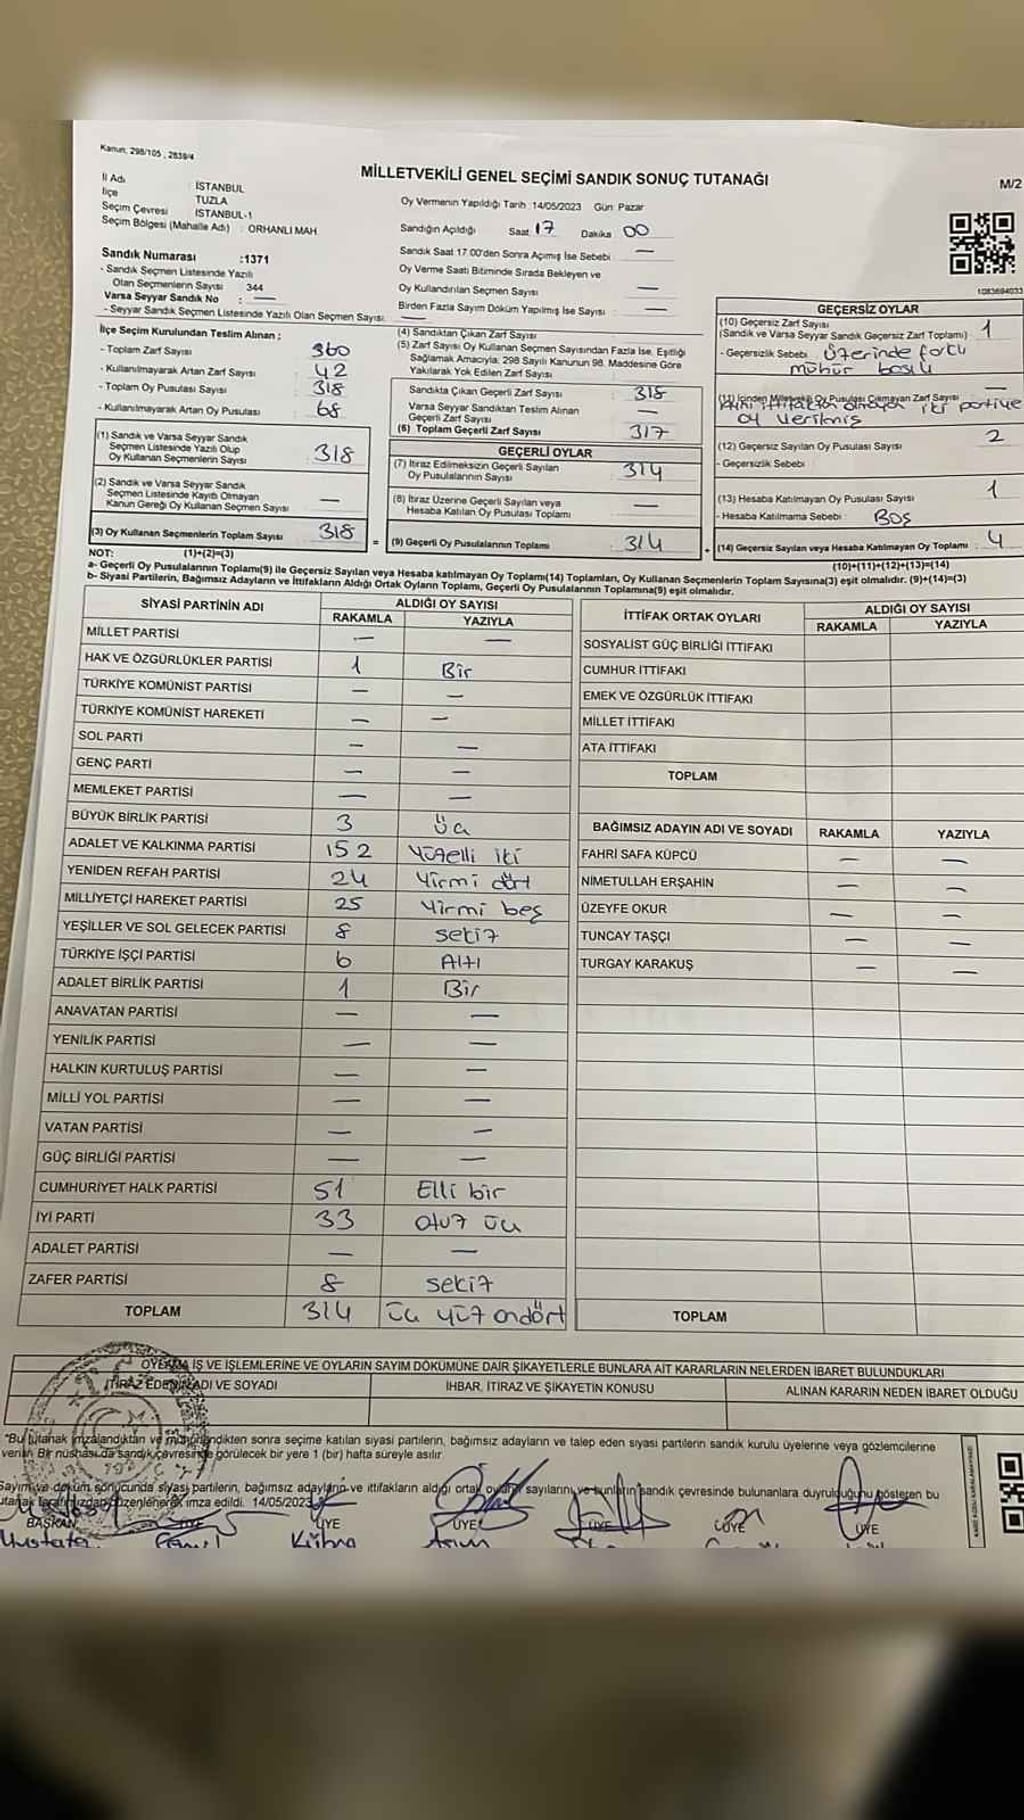 Kanun; 298/105 , 2839/4
MİLLETVEKİLİ GENEL SEÇİMİ SANDIK SONUÇ TUTANAĞI
M/2
İl Adı İSTANBUL
İlçe TUZLA
Seçim Çevresi İSTANBUL-1
Seçim Bölgesi (Mahalle Adı) : ORHANLI MAH.
Oy Vermenin Yapıldığı Tarih :14/05/2023 Gün: Pazar
Sandığın Açıldığı Saat 17 Dakika 00
Sandık Saat 17:00'den Sonra Açımış İse Sebebi —
Oy Verme Saati Bitiminde Sırada Bekleyen ve
Oy Kullandırılan Seçmen Sayısı —
Birden Fazla Sayım Döküm Yapılmış İse Sayısı —
1083694033
Sandık Numarası :1371
- Sandık Seçmen Listesinde Yazılı
Olan Seçmenlerin Sayısı 344
Varsa Seyyar Sandık No : —
- Seyyar Sandık Seçmen Listesinde Yazılı Olan Seçmen Sayısı: —
İlçe Seçim Kurulundan Teslim Alınan ;
- Toplam Zarf Sayısı 360
- Kullanılmayarak Artan Zarf Sayısı 42
- Toplam Oy Pusulası Sayısı 318
- Kullanılmayarak Artan Oy Pusulası 68
(1) Sandık ve Varsa Seyyar Sandık
Seçmen Listesinde Yazılı Olup
Oy Kullanan Seçmenlerin Sayısı 318
(2) Sandık ve Varsa Seyyar Sandık
Seçmen Listesinde Kayıtlı Olmayan
Kanun Gereği Oy Kullanan Seçmen Sayısı —
(3) Oy Kullanan Seçmenlerin Toplam Sayısı 318
(4) Sandıktan Çıkan Zarf Sayısı
(5) Zarf Sayısı Oy Kullanan Seçmen Sayısından Fazla İse, Eşitliği
Sağlamak Amacıyla; 298 Sayılı Kanunun 98. Maddesine Göre
Yakılarak Yok Edilen Zarf Sayısı
Sandıkta Çıkan Geçerli Zarf Sayısı 318
Varsa Seyyar Sandıktan Teslim Alınan
Geçerli Zarf Sayısı —
(6) Toplam Geçerli Zarf Sayısı 317
GEÇERLİ OYLAR
(7) İtiraz Edilmeksizin Geçerli Sayılan
Oy Pusulalarının Sayısı 314
(8) İtiraz Üzerine Geçerli Sayılan veya
Hesaba Katılan Oy Pusulası Toplamı —
= (9) Geçerli Oy Pusulalarının Toplamı 314
GEÇERSİZ OYLAR
(10) Geçersiz Zarf Sayısı
(Sandık ve Varsa Seyyar Sandık Geçersiz Zarf Toplamı) 1
- Geçersizlik Sebebi Üzerinde farklı
mühür basılı
(11) İçinden Milletvekili Oy Pusulası Çıkmayan Zarf Sayısı —
Aynı ittifaktan olmayan iki partiye
oy verilmiş
(12) Geçersiz Sayılan Oy Pusulası Sayısı 2
- Geçersizlik Sebebi
(13) Hesaba Katılmayan Oy Pusulası Sayısı 1
- Hesaba Katılmama Sebebi : Boş
+ (14) Geçersiz Sayılan veya Hesaba Katılmayan Oy Toplamı : 4
NOT: (1)+(2)=(3)
(10)+(11)+(12)+(13)=(14)
a- Geçerli Oy Pusulalarının Toplamı(9) ile Geçersiz Sayılan veya Hesaba katılmayan Oy Toplamı(14) Toplamları, Oy Kullanan Seçmenlerin Toplam Sayısına(3) eşit olmalıdır. (9)+(14)=(3)
b- Siyasi Partilerin, Bağımsız Adayların ve İttifakların Aldığı Ortak Oyların Toplamı, Geçerli Oy Pusulalarının Toplamına(9) eşit olmalıdır.
SİYASİ PARTİNİN ADI ALDIĞI OY SAYISI
RAKAMLA YAZIYLA
MİLLET PARTİSİ — —
HAK VE ÖZGÜRLÜKLER PARTİSİ 1 Bir
TÜRKİYE KOMÜNİST PARTİSİ — —
TÜRKİYE KOMÜNİST HAREKETİ — —
SOL PARTİ — —
GENÇ PARTİ — —
MEMLEKET PARTİSİ — —
BÜYÜK BİRLİK PARTİSİ 3 Üç
ADALET VE KALKINMA PARTİSİ 152 Yüzelli iki
YENİDEN REFAH PARTİSİ 24 Yirmi dört
MİLLİYETÇİ HAREKET PARTİSİ 25 Yirmi beş
YEŞİLLER VE SOL GELECEK PARTİSİ 8 sekiz
TÜRKİYE İŞÇİ PARTİSİ 6 Altı
ADALET BİRLİK PARTİSİ 1 Bir
ANAVATAN PARTİSİ — —
YENİLİK PARTİSİ — —
HALKIN KURTULUŞ PARTİSİ — —
MİLLİ YOL PARTİSİ — —
VATAN PARTİSİ — —
GÜÇ BİRLİĞİ PARTİSİ — —
CUMHURİYET HALK PARTİSİ 51 Elli bir
İYİ PARTİ 33 otuz üç
ADALET PARTİSİ — —
ZAFER PARTİSİ 8 sekiz
TOPLAM 314 üç yüz ondört
İTTİFAK ORTAK OYLARI ALDIĞI OY SAYISI
RAKAMLA YAZIYLA
SOSYALİST GÜÇ BİRLİĞİ İTTİFAKI
CUMHUR İTTİFAKI
EMEK VE ÖZGÜRLÜK İTTİFAKI
MİLLET İTTİFAKI
ATA İTTİFAKI
TOPLAM
BAĞIMSIZ ADAYIN ADI VE SOYADI RAKAMLA YAZIYLA
FAHRİ SAFA KÜPCÜ — —
NİMETULLAH ERŞAHİN — —
ÜZEYFE OKUR — —
TUNCAY TAŞÇI — —
TURGAY KARAKUŞ — —
TOPLAM
OYLAMA İŞ VE İŞLEMLERİNE VE OYLARIN SAYIM DÖKÜMÜNE DAİR ŞİKAYETLERLE BUNLARA AİT KARARLARIN NELERDEN İBARET BULUNDUKLARI
İTİRAZ EDENİN ADI VE SOYADI İHBAR, İTİRAZ VE ŞİKAYETİN KONUSU ALINAN KARARIN NEDEN İBARET OLDUĞU
"Bu tutanak imzalandıktan ve mühürlendikten sonra seçime katılan siyasi partilerin, bağımsız adayların ve talep eden siyasi partilerin sandık kurulu üyelerine veya gözlemcilerine
verilir. Bir nüshası da sandık çevresinde görülecek bir yere 1 (bir) hafta süreyle asılır.
Sayım ve döküm sonucunda siyasi partilerin, bağımsız adayların ve ittifakların aldığı ortak oyların sayılarını ve bunların sandık çevresinde bulunanlara duyrulduğunu gösteren bu
tutanak tarafımızdan düzenlenerek imza edildi. 14/05/2023
BAŞKAN ÜYE ÜYE ÜYE ÜYE ÜYE ÜYE
Mustafa Kübra